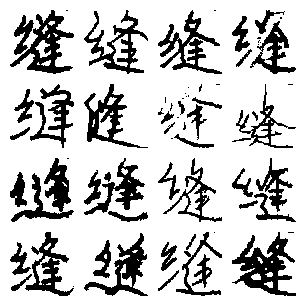 缝缝缝缝
缝缝缝缝
缝缝缝缝
缝缝缝缝